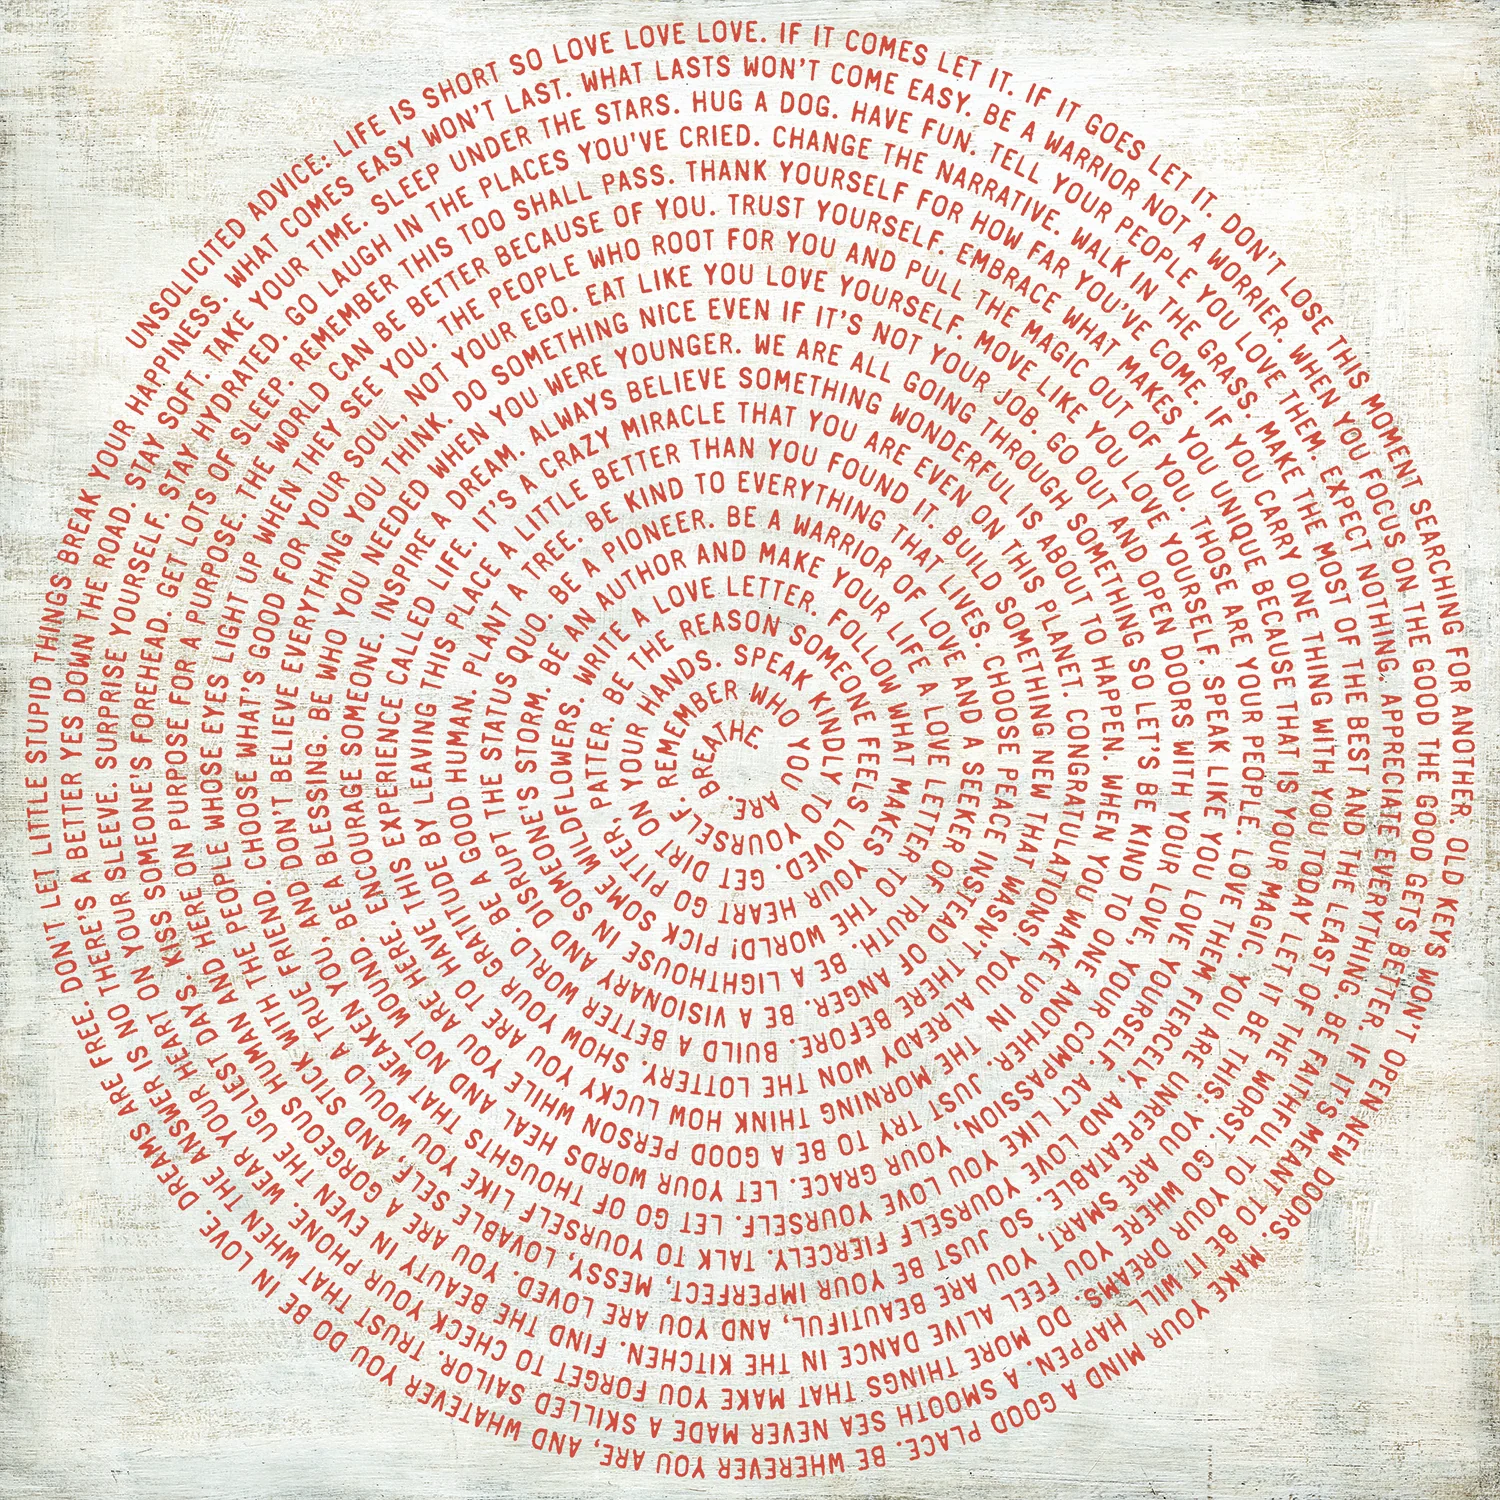 UNSOLICITED ADVICE: LIFE IS SHORT SO LOVE LOVE LOVE. IF IT COMES LET IT. IF IT GOES LET IT. DON'T LOSE THIS MOMENT SEARCHING FOR ANOTHER. OLD KEYS WON'T OPEN NEW DOORS. MAKE YOUR MIND A GOOD PLACE. BE WHEREVER YOU ARE, AND WHATEVER YOU DO BE IN LOVE. DREAMS ARE FREE. DON'T LET LITTLE STUPID THINGS BREAK YOUR HAPPINESS.
WHAT COMES EASY WON'T LAST. WHAT LASTS WON'T COME EASY. BE A WARRIOR NOT A WORRIER. WHEN YOU FOCUS ON THE GOOD THE GOOD GETS BETTER. IF IT'S MEANT TO BE IT WILL HAPPEN. A SMOOTH SEA NEVER MADE A SKILLED SAILOR. TRUST THAT WHEN THE ANSWER IS NO THERE'S A BETTER YES DOWN THE ROAD. STAY SOFT.
TAKE YOUR TIME. SLEEP UNDER THE STARS. HUG A DOG. HAVE FUN. TELL YOUR PEOPLE YOU LOVE THEM. EXPECT NOTHING, APPRECIATE EVERYTHING. BE FAITHFUL TO YOUR DREAMS. DO MORE THINGS THAT MAKE YOU FORGET TO CHECK YOUR PHONE. WEAR YOUR HEART ON YOUR SLEEVE. SURPRISE YOURSELF. STAY HYDRATED.
GO LAUGH IN THE PLACES YOU'VE CRIED. CHANGE THE NARRATIVE. WALK IN THE GRASS. MAKE THE MOST OF THE BEST AND THE LEAST OF THE WORST. GO WHERE YOU FEEL ALIVE DANCE IN THE KITCHEN. FIND THE BEAUTY IN EVEN THE UGLIEST DAYS. KISS SOMEONE'S FOREHEAD. GET LOTS OF SLEEP.
REMEMBER THIS TOO SHALL PASS. THANK YOURSELF FOR HOW FAR YOU'VE COME. IF YOU CARRY ONE THING WITH YOU TODAY LET IT BE THIS: YOU ARE SMART, YOU ARE BEAUTIFUL, AND YOU ARE LOVED. YOU ARE A GORGEOUS HUMAN AND HERE ON PURPOSE FOR A PURPOSE.
THE WORLD CAN BE BETTER BECAUSE OF YOU. TRUST YOURSELF. EMBRACE WHAT MAKES YOU UNIQUE BECAUSE THAT IS YOUR MAGIC. YOU ARE UNREPEATABLE. SO JUST BE YOUR IMPERFECT, MESSY, LOVABLE SELF, AND STICK WITH THE PEOPLE WHOSE EYES LIGHT UP WHEN THEY SEE YOU.
THE PEOPLE WHO ROOT FOR YOU AND PULL THE MAGIC OUT OF YOU. THOSE ARE YOUR PEOPLE. LOVE THEM FIERCELY, AND LOVE YOURSELF FIERCELY. TALK TO YOURSELF LIKE YOU WOULD A TRUE FRIEND. CHOOSE WHAT'S GOOD FOR YOUR SOUL, NOT YOUR EGO.
EAT LIKE YOU LOVE YOURSELF. MOVE LIKE YOU LOVE YOURSELF. SPEAK LIKE YOU LOVE YOURSELF. ACT LIKE YOU LOVE YOURSELF. LET GO OF THOUGHTS THAT WEAKEN YOU, AND DON'T BELIEVE EVERYTHING YOU THINK.
DO SOMETHING NICE EVEN IF IT'S NOT YOUR JOB. GO OUT AND OPEN DOORS WITH YOUR LOVE, YOUR COMPASSION, YOUR GRACE. LET YOUR WORDS HEAL AND NOT WOUND. BE A BLESSING. BE WHO YOU NEEDED WHEN YOU WERE YOUNGER.
WE ARE ALL GOING THROUGH SOMETHING SO LET'S BE KIND TO ONE ANOTHER. JUST TRY TO BE A GOOD PERSON WHILE YOU ARE HERE. ENCOURAGE SOMEONE. INSPIRE A DREAM.
ALWAYS BELIEVE SOMETHING WONDERFUL IS ABOUT TO HAPPEN. WHEN YOU MAKE UP IN THE MORNING THINK HOW LUCKY YOU ARE TO HAVE THIS EXPERIENCE CALLED LIFE.
IT'S A CRAZY MIRACLE THAT YOU ARE EVEN ON THIS PLANET. CONGRATULATIONS! YOU ALREADY WON THE LOTTERY. SHOW YOUR GRATITUDE BY LEAVING THIS PLACE A LITTLE BETTER THAN YOU FOUND IT.
BUILD SOMETHING NEW THAT WASN'T THERE BEFORE. BUILD A BETTER WORLD. BE A GOOD HUMAN. PLANT A TREE.
BE KIND TO EVERYTHING THAT LIVES. CHOOSE PEACE INSTEAD OF ANGER. BE A VISIONARY AND DISRUPT THE STATUS QUO. BE A PIONEER.
BE A WARRIOR OF LOVE AND A SEEKER OF TRUTH. BE A LIGHTHOUSE IN SOMEONE'S STORM.
BE AN AUTHOR AND MAKE YOUR LIFE A LOVE LETTER TO THE WORLD! PICK SOME WILDFLOWERS.
WRITE A LOVE LETTER. FOLLOW WHAT MAKES YOUR HEART GO PITTER, PATTER.
BE THE REASON SOMEONE FEELS LOVED. GET DIRT ON YOUR HANDS.
SPEAK KINDLY TO YOURSELF.
REMEMBER WHO YOU ARE. BREATHE.